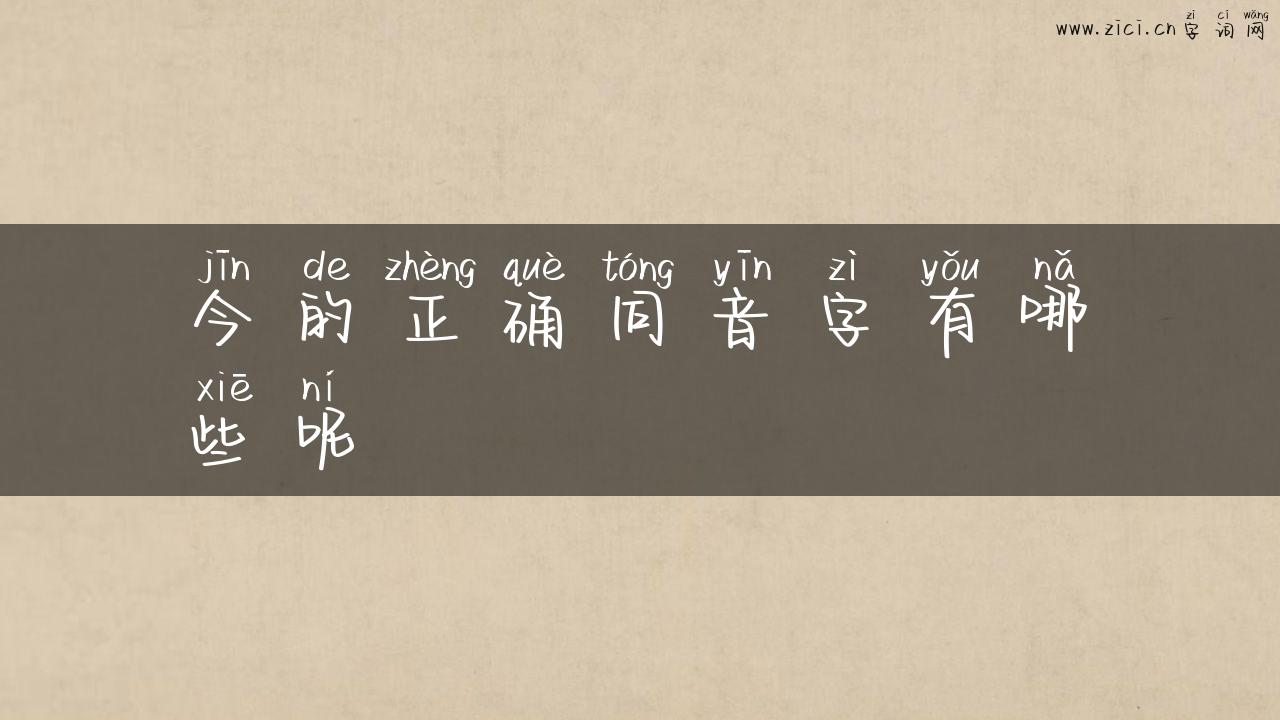 zì cí wǎng
www.zici.cn 字 词 网
jīn de zhèng què tóng yīn zì yǒu nǎ
今 的 正 确 同 音 字 有 哪
xiē ní
些 呢